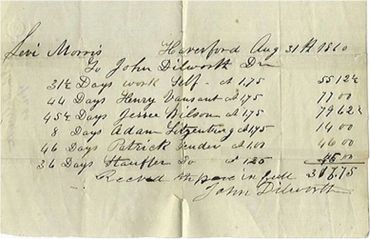 Levi Morris Haverford Aug 31th
To John Dilworth Dr
31½ Days work Self - at 1,75 55 12½
44 Days Henry Vansant at 1,75 77 00
45½ Days Jesse Wilson at 1,75 79 62½
8 Days Adam at 1,75 14 00
46 Days Patrick at 1,00 46 00
36 Days Stauffer Do at 1,25 45 00
Received the above in full 316,75
John Dilworth